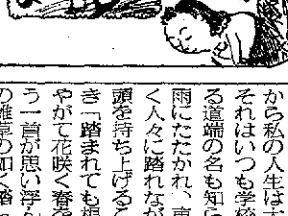 から私の人生は
それはいつも学校
る道端の名も知ら
雨にたたかれ、
く人々に踏れなが
頭を持ち上げるこ
き「踏まれても
やがて花咲く春を
う一首が思い浮
の雑草の如く